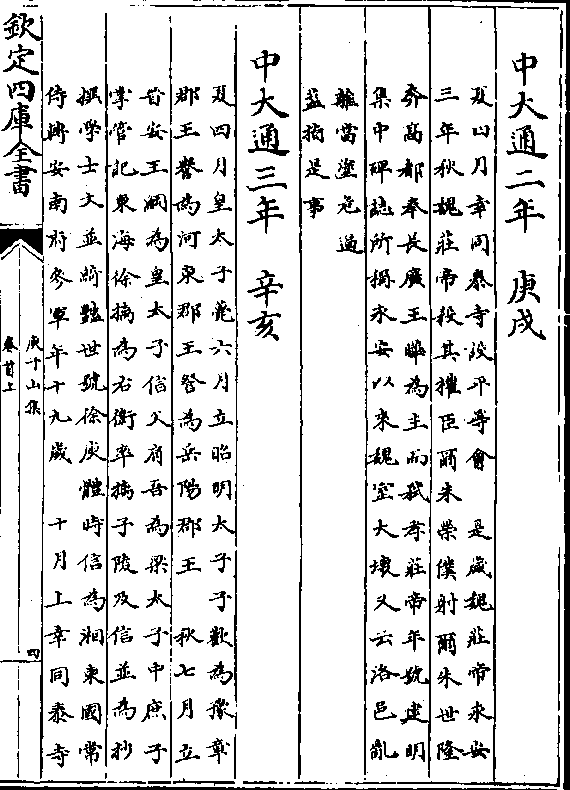 中大通二年　庚戌
夏四月幸同泰寺設平等會　是歲魏莊帝永安
三年秋魏莊帝殺其權臣爾朱榮僕射爾朱世隆
奔高都奉長廣王曄為主而弒孝莊帝年號建明
集中碑誌所揭永安以來魏室大壊又云洛邑亂
離當塗危逼
葢指是事
中大通三年　辛亥
夏四月皇太子薨六月立昭明太子子歡為豫章
郡王譽為河東郡王詧為岳陽郡王　秋七月立
晉安王綱為皇太子信父肩吾為梁太子中庶子
掌管記東海徐摛為右衛率摛子陵及信並為抄
撰學士文並綺豔世號徐庾體時信為湘東國常
侍轉安南府參軍年十九歲　十月上幸同泰寺
欽定四庫全書
庾子山集
卷首上
四